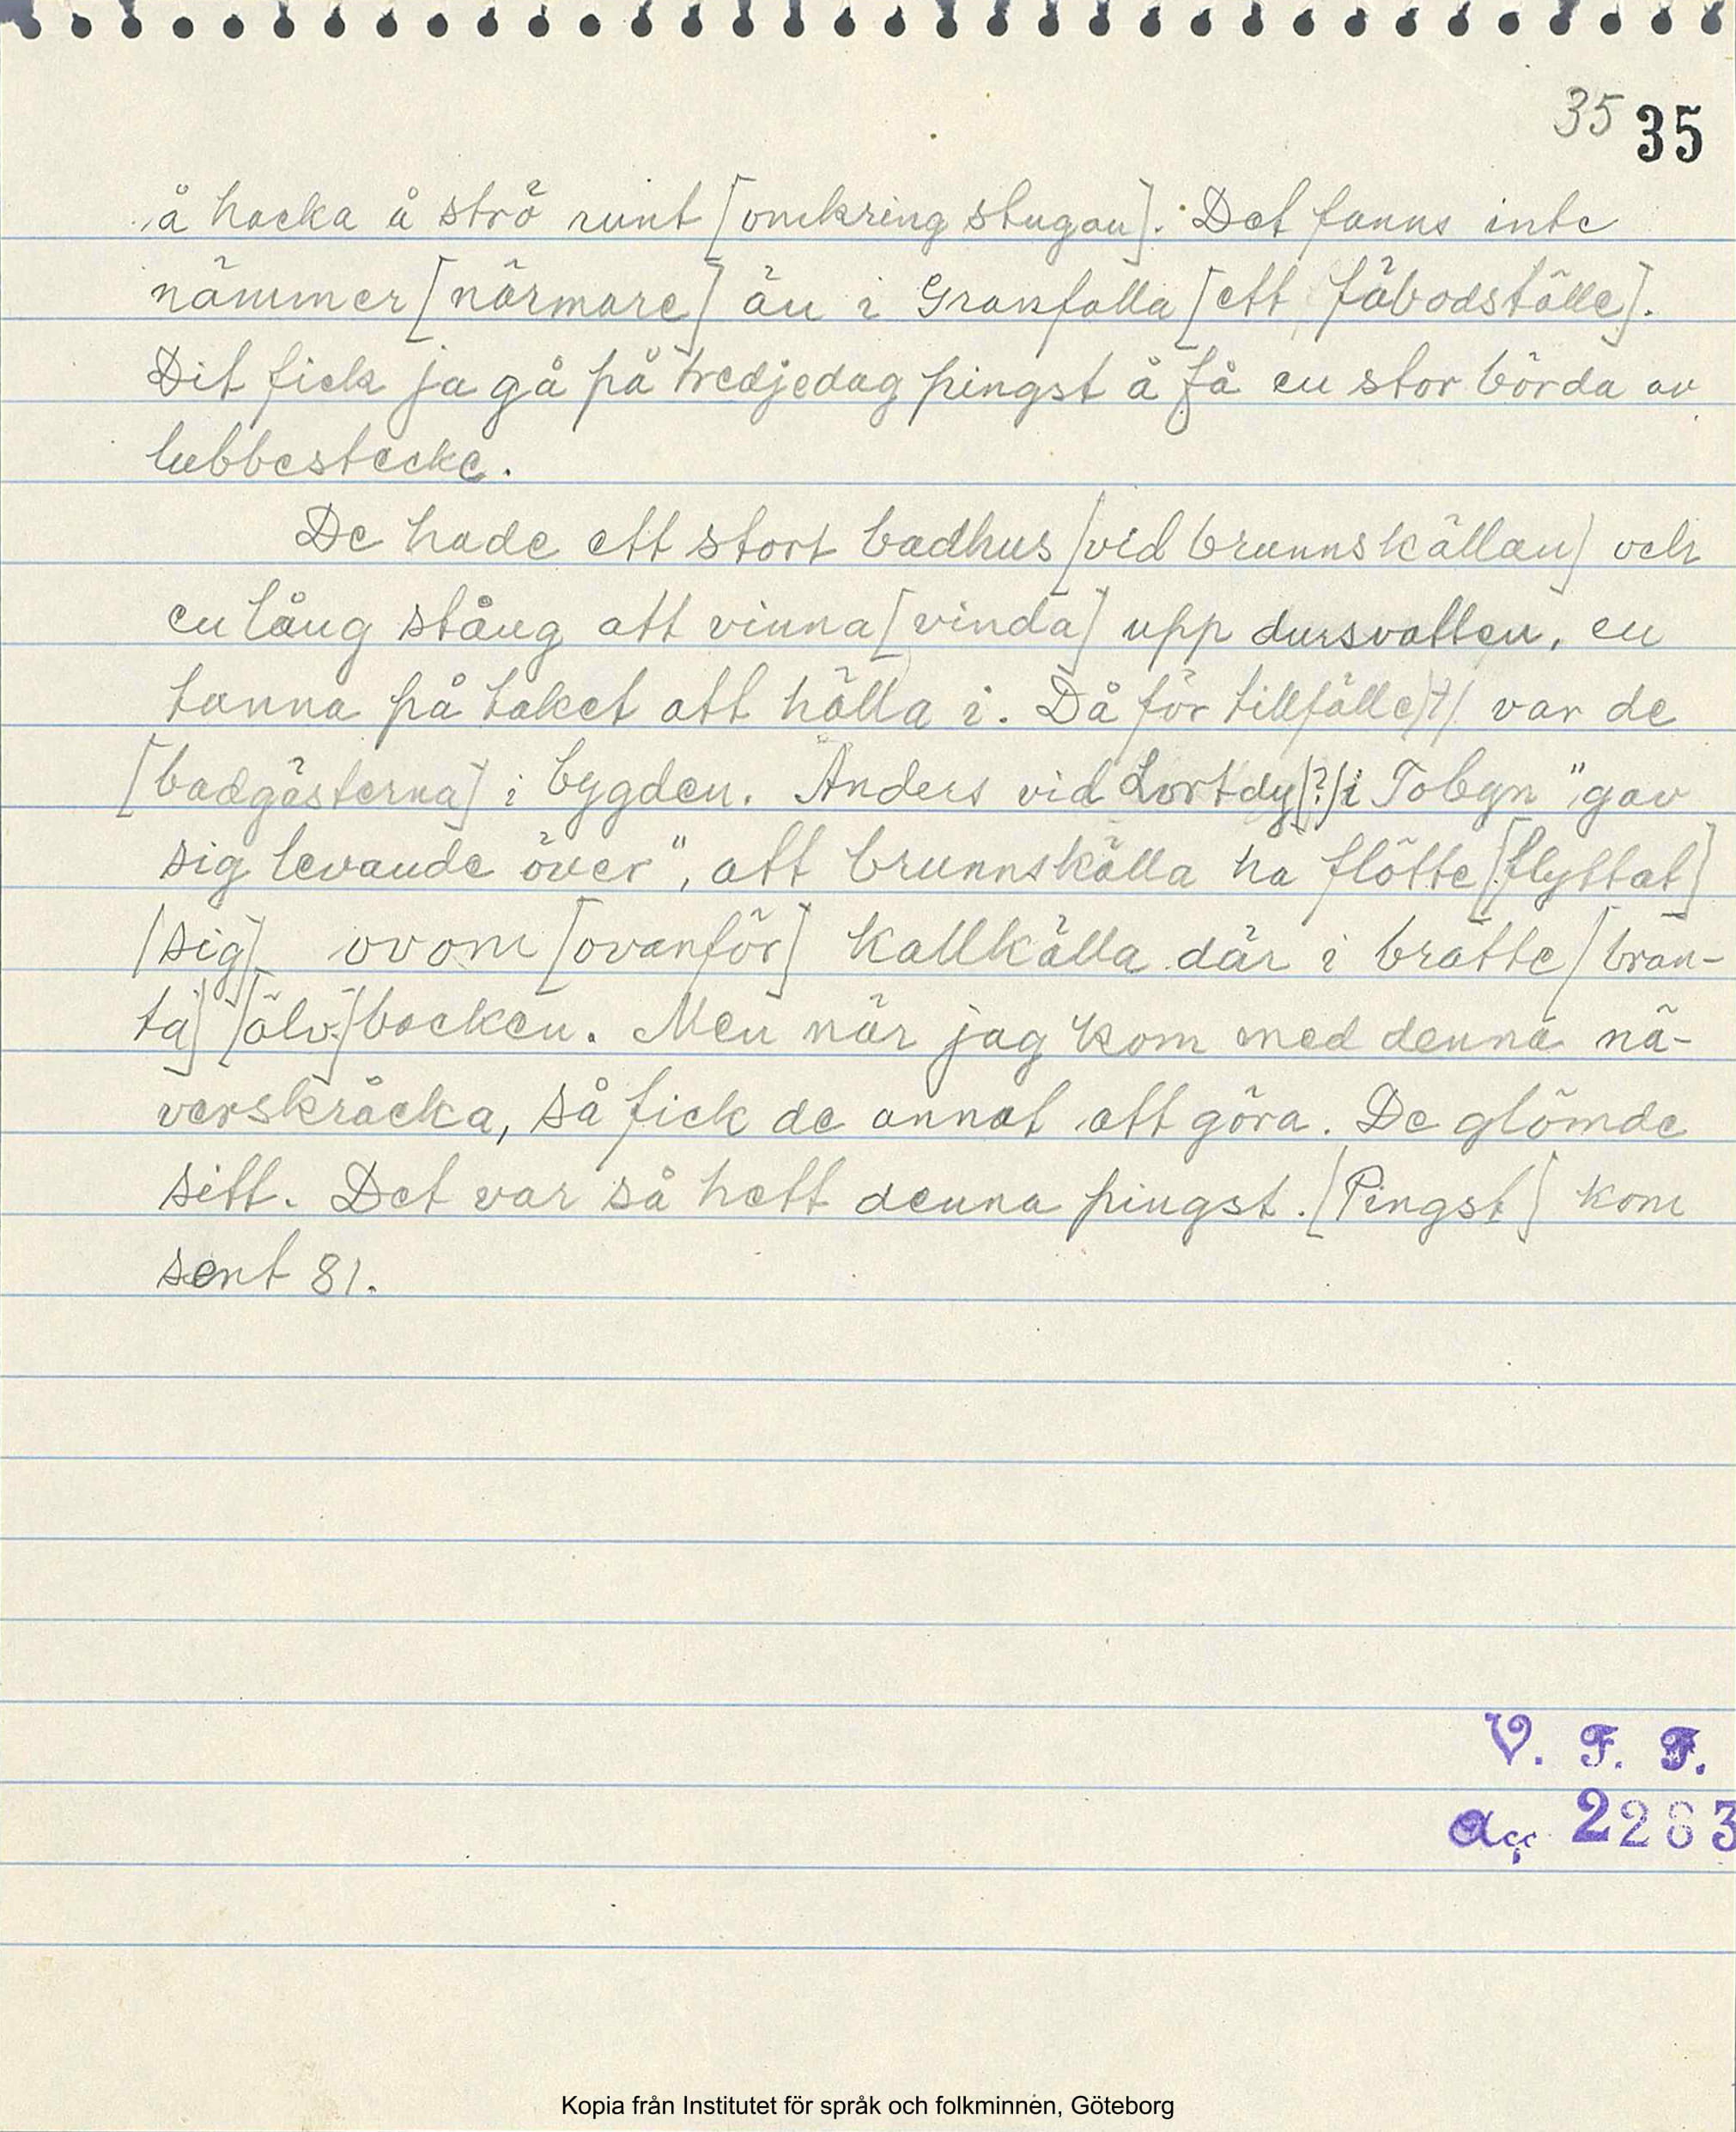 35 35
å hacka å strö runt [omkring stugan]. Det fanns inte
nämmer [närmare] än i Granfalla [ett fäbodställe].
Dit fick ja gå på tredjedag pingst å få en stor börda av
lubbestecke.
De hade ett stort badhus [vid brunnskällan] och
en lång stång att vinna [vinda] upp dursvatten, en
tunna på taket att hälla i. Då för tillfälle[t] var de
[badgästerna] i bygden. Anders vid Lortdy [?] i Tobyn "gav
sig levande över", att brunnskälla ha flötte [flyttat]
[sig] ovom [ovanför] kallkälla där i brätte [bran-
ta] [älv]backen. Men när jag kom med denna nä-
verskråcka, så fick de annat att göra. De glömde
sitt. Det var så hett denna pingst. [Pingst] kom
sent 81.
V. F. F.
acc. 2283
Kopia från Institutet för språk och folkminnen, Göteborg